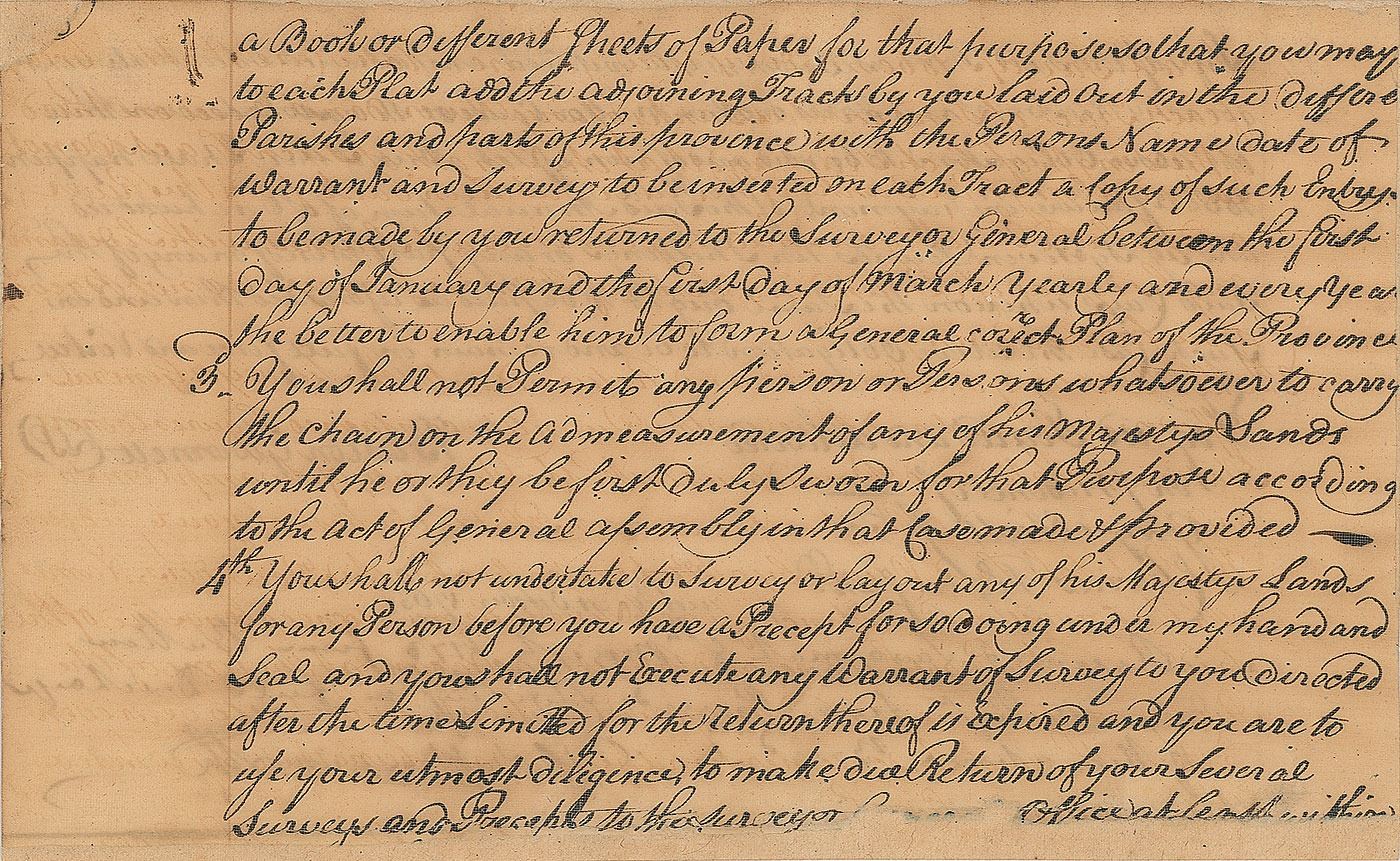 a Book or different Sheets of Paper for that purpose so that you may
to each Plat add the adjoining Tracts by you laid Out in the differe
Parishes and parts of this province with the Persons Name date of
Warrant and Survey to be inserted on each Tract a Copy of such Entrys
to be made by you returned to the Surveyor General between the first
day of January and the first day of March Yearly and every Year
the better to enable him to form a General corect Plan of the Province
3 You shall not Permit any person or Persons whatsoever to carry
the Chain on the Admeasurement of any of his Majestys Lands
until he or they be first Duly Sworn for that Purpose according
to the Act of General assembly in that Case made & provided
4th You shall not undertake to Survey or lay out any of his Majestys Lands
for any Person before you have a Precept for so Doing under my hand and
Seal and you shall not Execute any Warrant of Survey to you Directed
after the time Limitted for the return thereof is Expired and you are to
use your utmost diligence to make due Return of your Several
Surveys and Precepts to the surveyor Office at least within